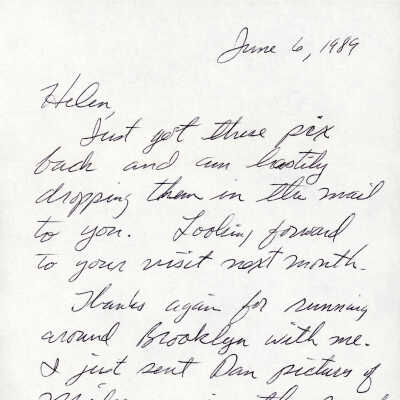 June 6, 1989
Helen,
Just got these pix
back and am hastily
dropping them in the mail
to you. Looking forward
to your visit next month.
Thanks again for running
around Brooklyn with me.
I just sent Dan pictures of